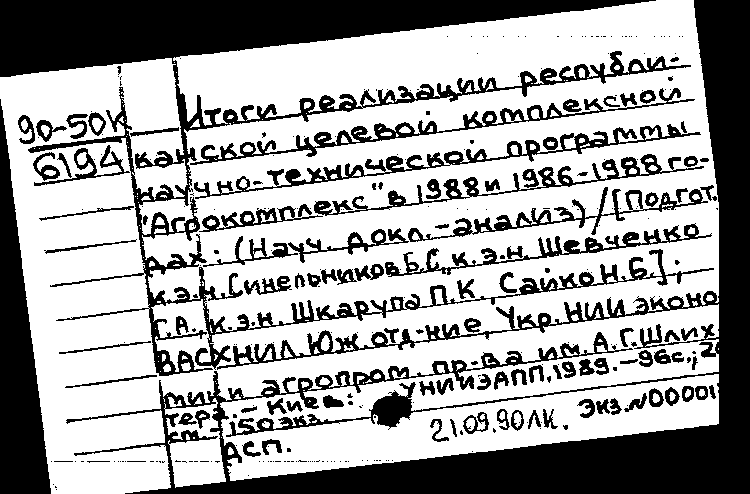 90-50К
6194
Итоги реализации республи-
канской целевой комплексной
научно-технической программы
"Агрокомплекс" в 1988 и 1986-1988 го-
дах: (Науч. докл.-анализ) / [Подгот.
к.э.н. Синельников Б.С., к.э.н. Шевченко
Г.А., к.э.н. Шкарупа П.К., Сайко Н.Б.];
ВАСХНИЛ. Юж. отд-ние, Укр. НИИ эконо
мики агропром. пр-ва им. А.Г. Шлих
тера. - Киев: УНИИЭАПП, 1989. - 96с.; 20
см. - 150 экз.
ДСП.
21.09.90 ЛК. Экз. №00001